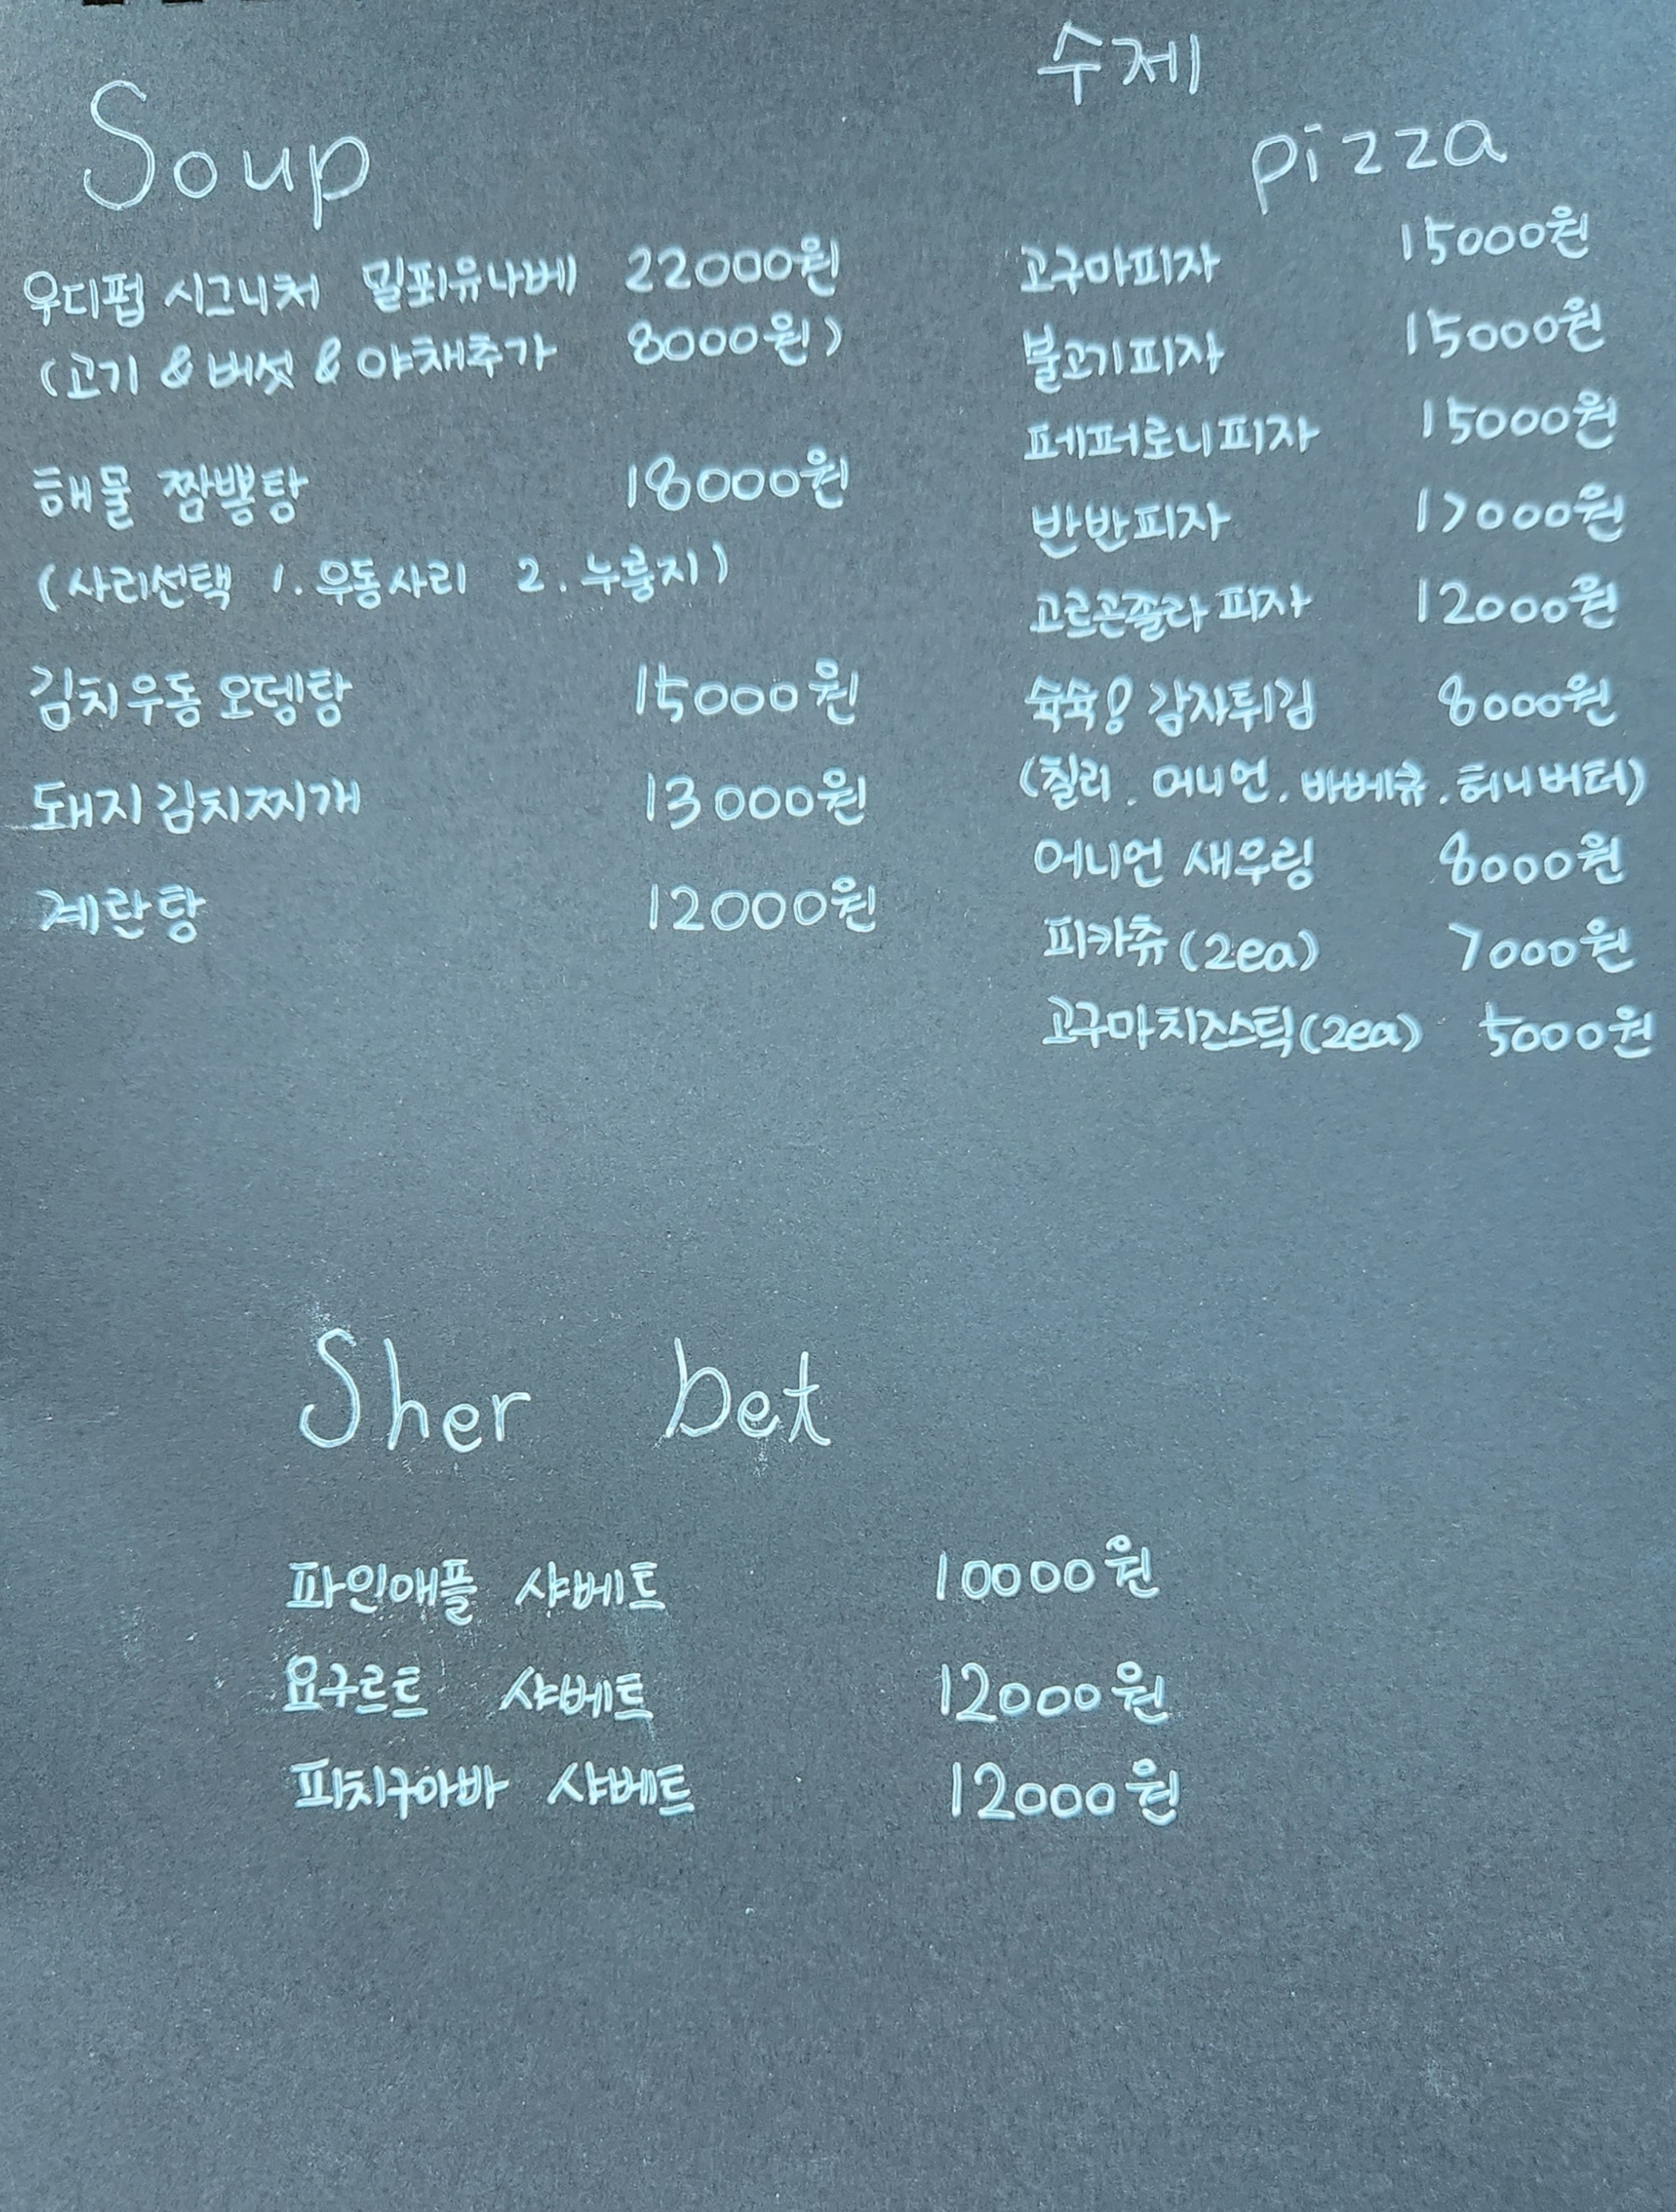 Soup
우디펍 시그니처 밀푀유나베 22000원
(고기 & 버섯 & 야채추가 8000원)
해물 짬뽕탕 18000원
(사리선택 1. 우동사리 2. 누룽지)
김치우동 오뎅탕 15000원
돼지김치찌개 13000원
계란탕 12000원
수제
pizza
고구마피자 15000원
불고기피자 15000원
페퍼로니피자 15000원
반반피자 17000원
고르곤졸라 피자 12000원
슉슉! 감자튀김 8000원
(칠리. 어니언. 바베큐. 허니버터)
어니언 새우링 8000원
피카츄(2ea) 7000원
고구마치즈스틱(2ea) 5000원
Sher bet
파인애플 샤베트 10000원
요구르트 샤베트 12000원
피치구아바 샤베트 12000원